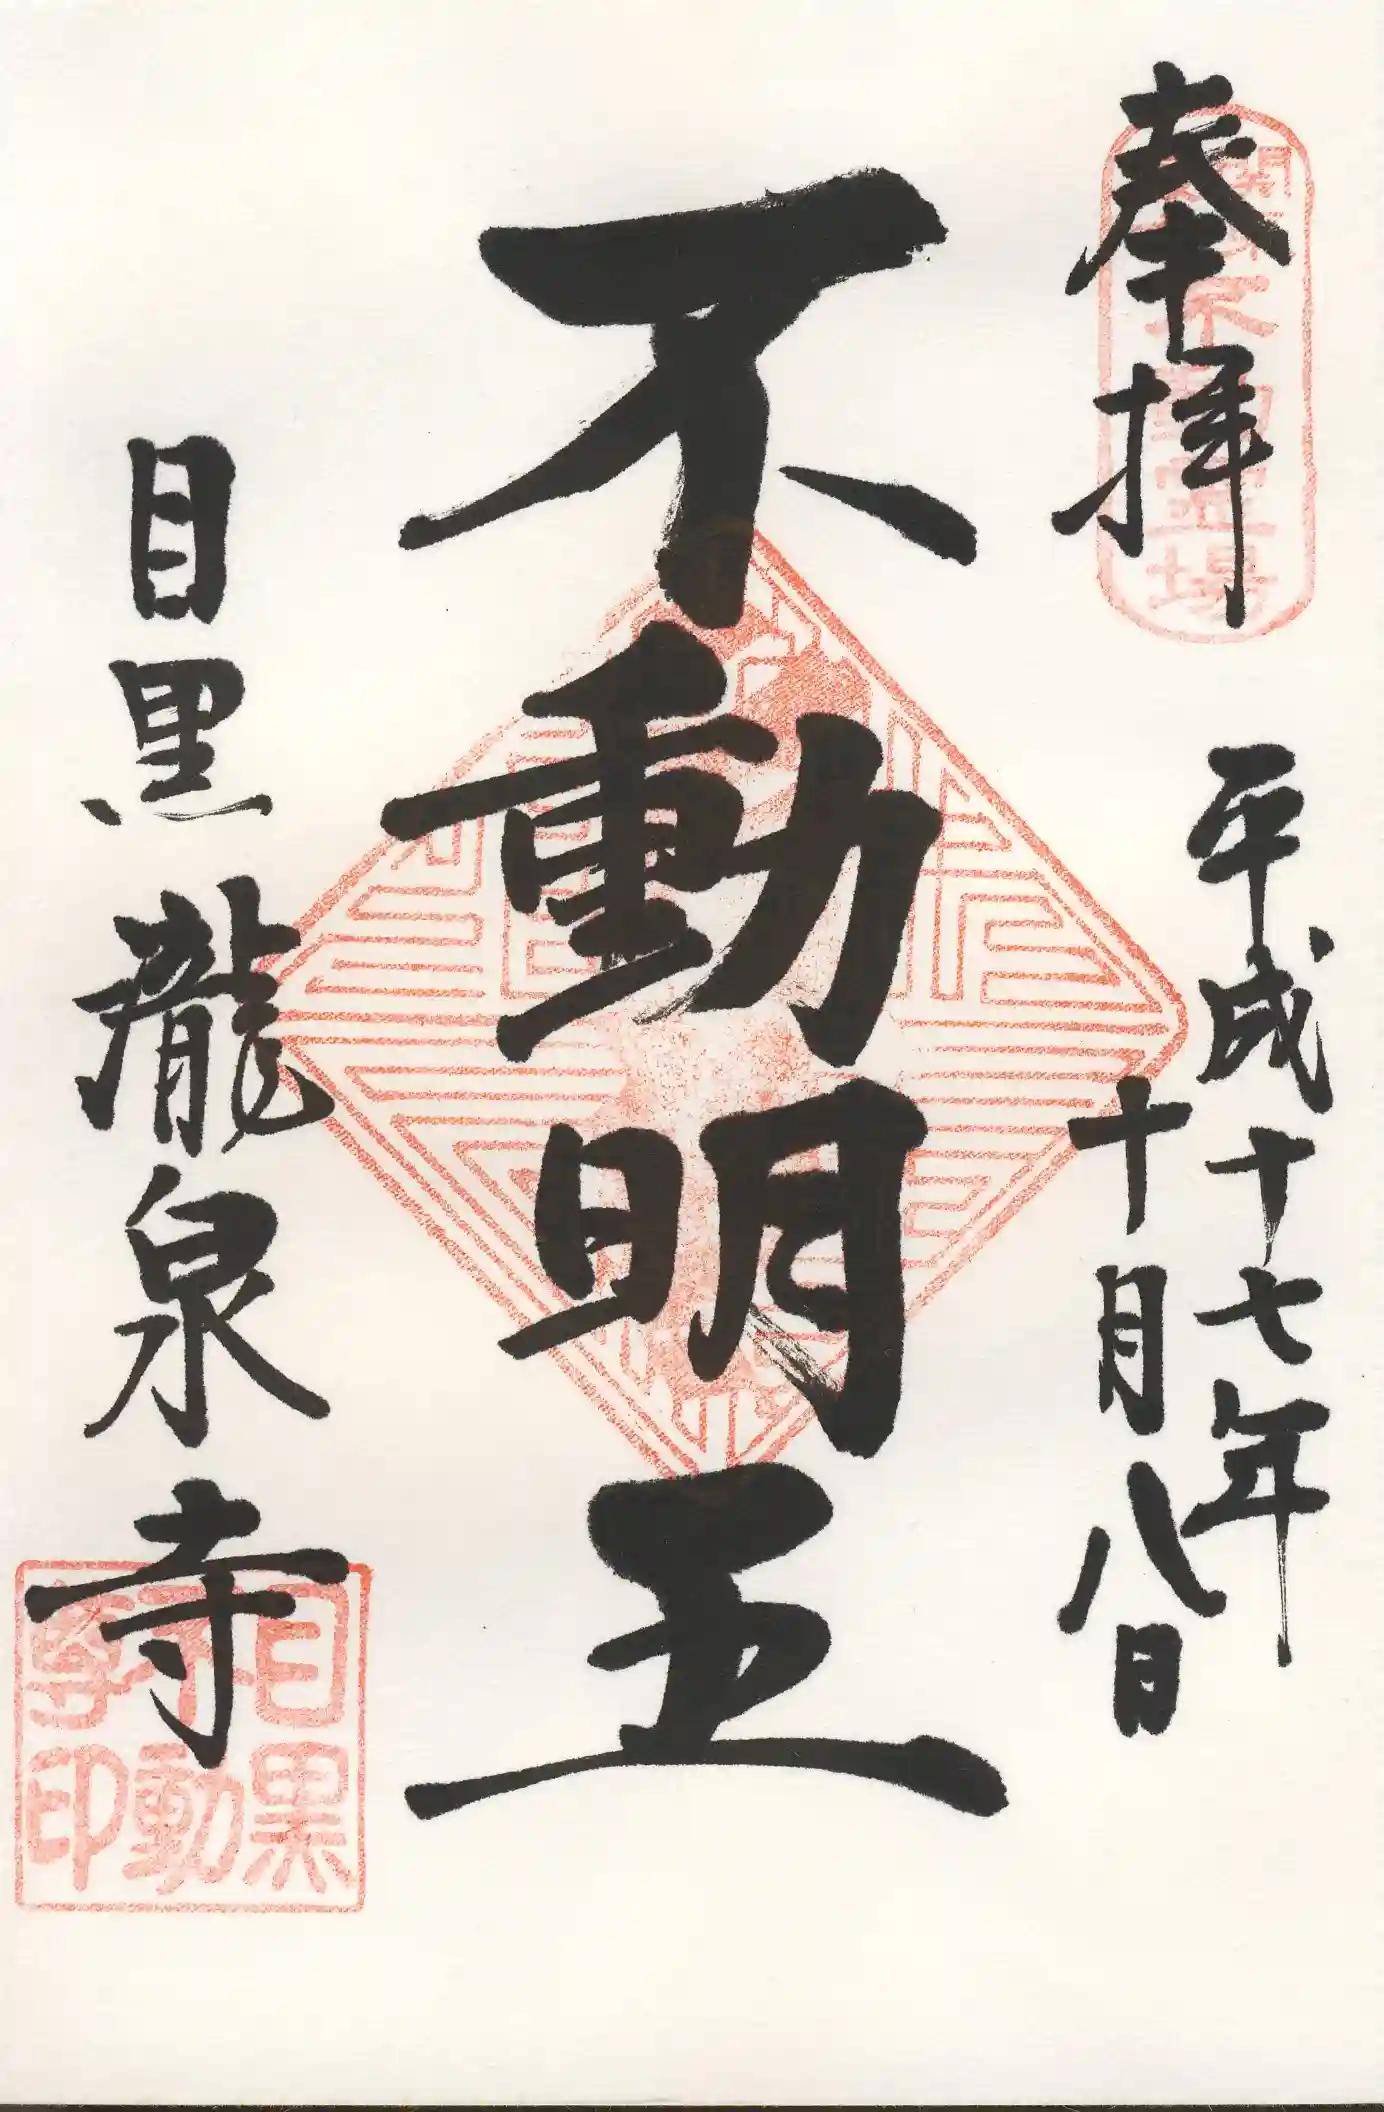 奉拝
平成十七年
十月八日
不動明王
目黒龍泉寺
関東
不動霊場
目黒
不動
尊印